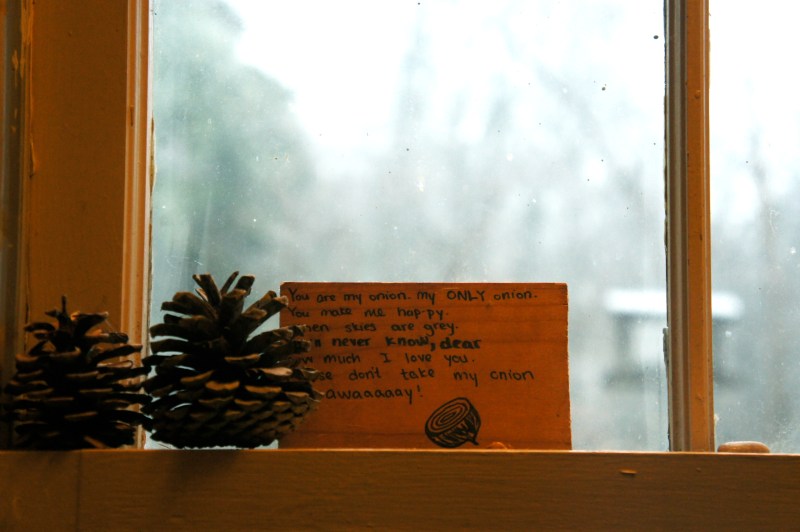 You are my onion. my ONLY onion.
You make me hap-py.
hen skies are grey.
never know, dear
much I love you.
se don't take my onion
awaaaaay!